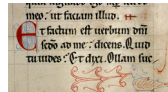 meo. ut faciam illud.
Et factum est uerbum dm̄
scd̄o ad me: dicens. Quid
tu uides? Et dixi. Ollam suc